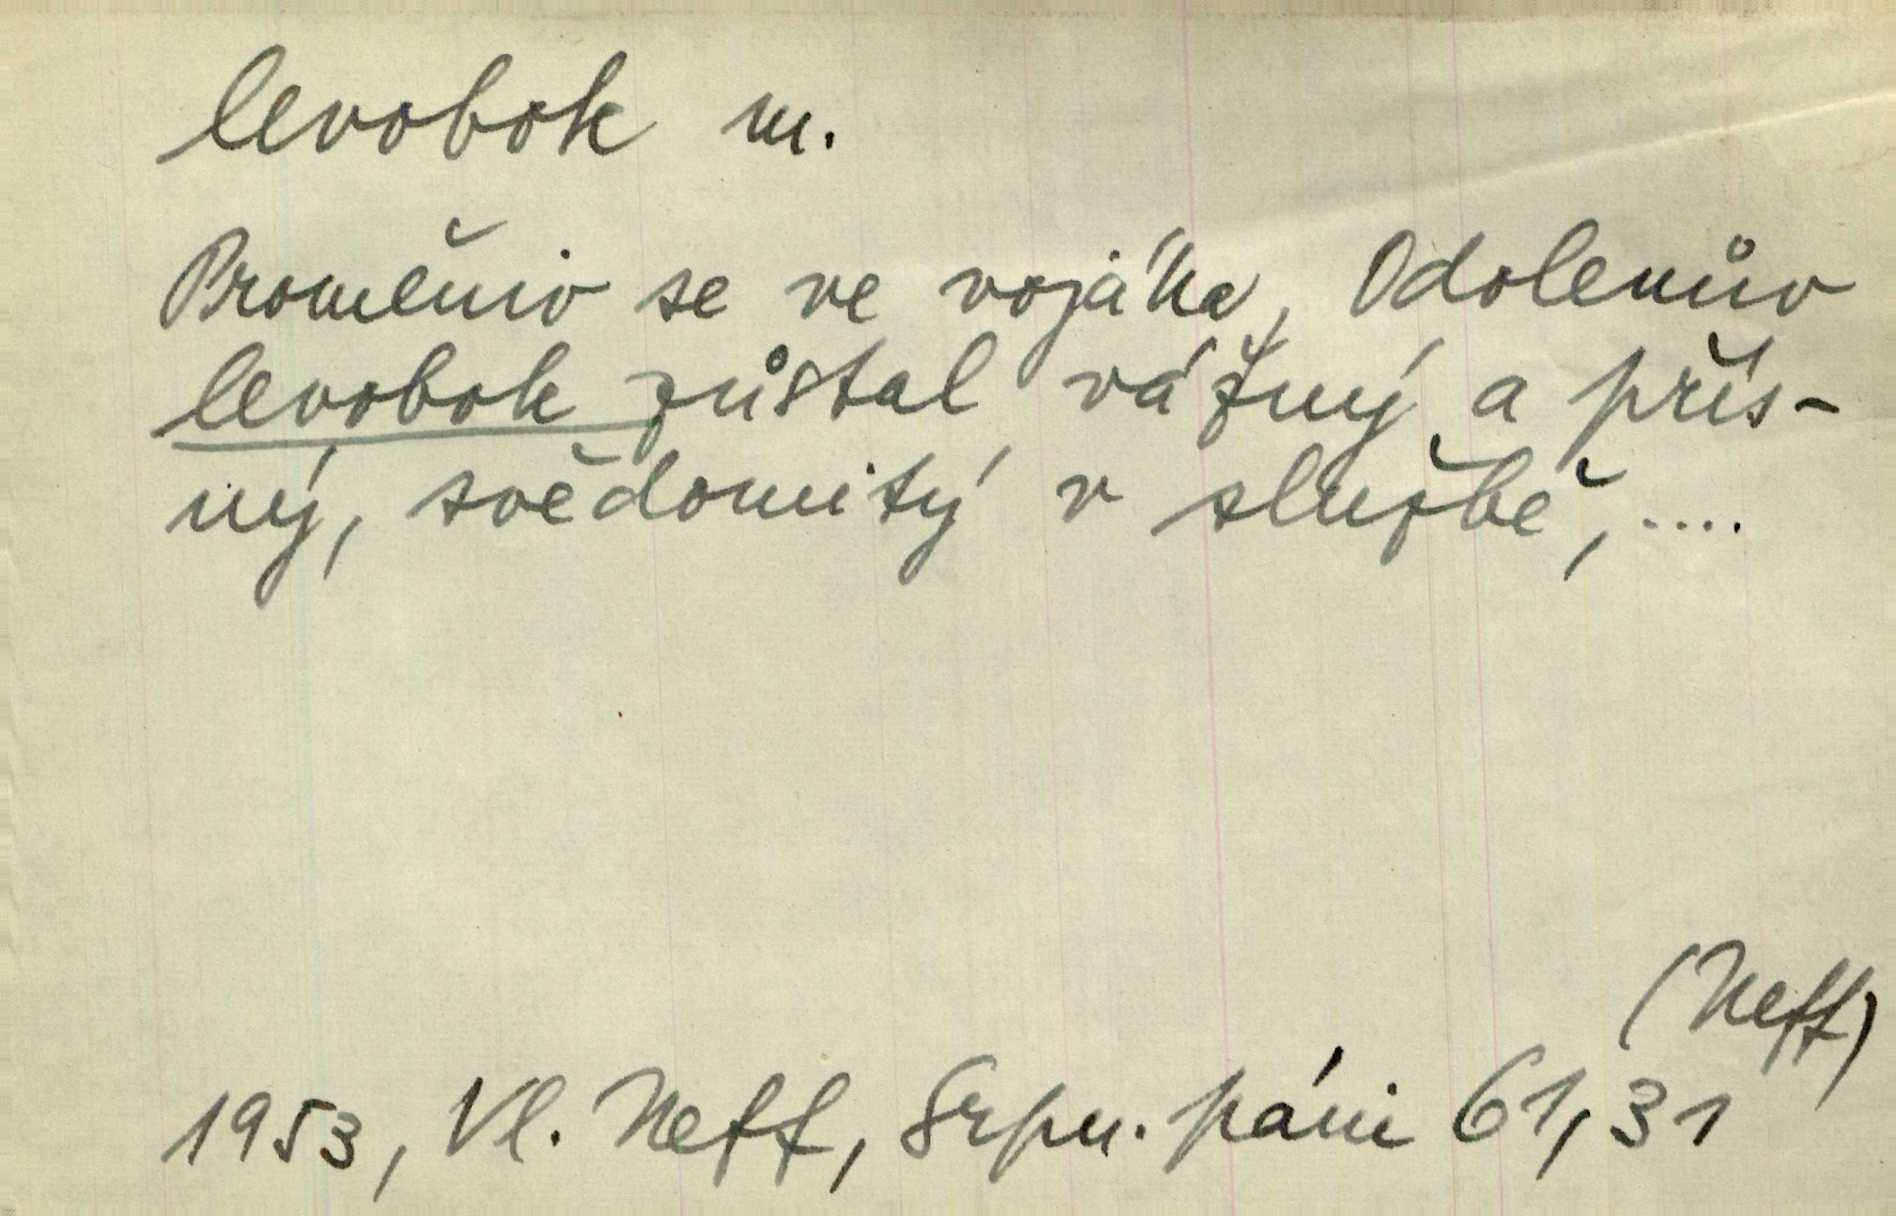 levobok m.
Proměniv se ve vojáka, Odolenův
levobok zůstal vážný a přís-
ný, svědomitý v službě, ....
(Neff)
1953, Vl. Neff, Srpn. páni 61, 31